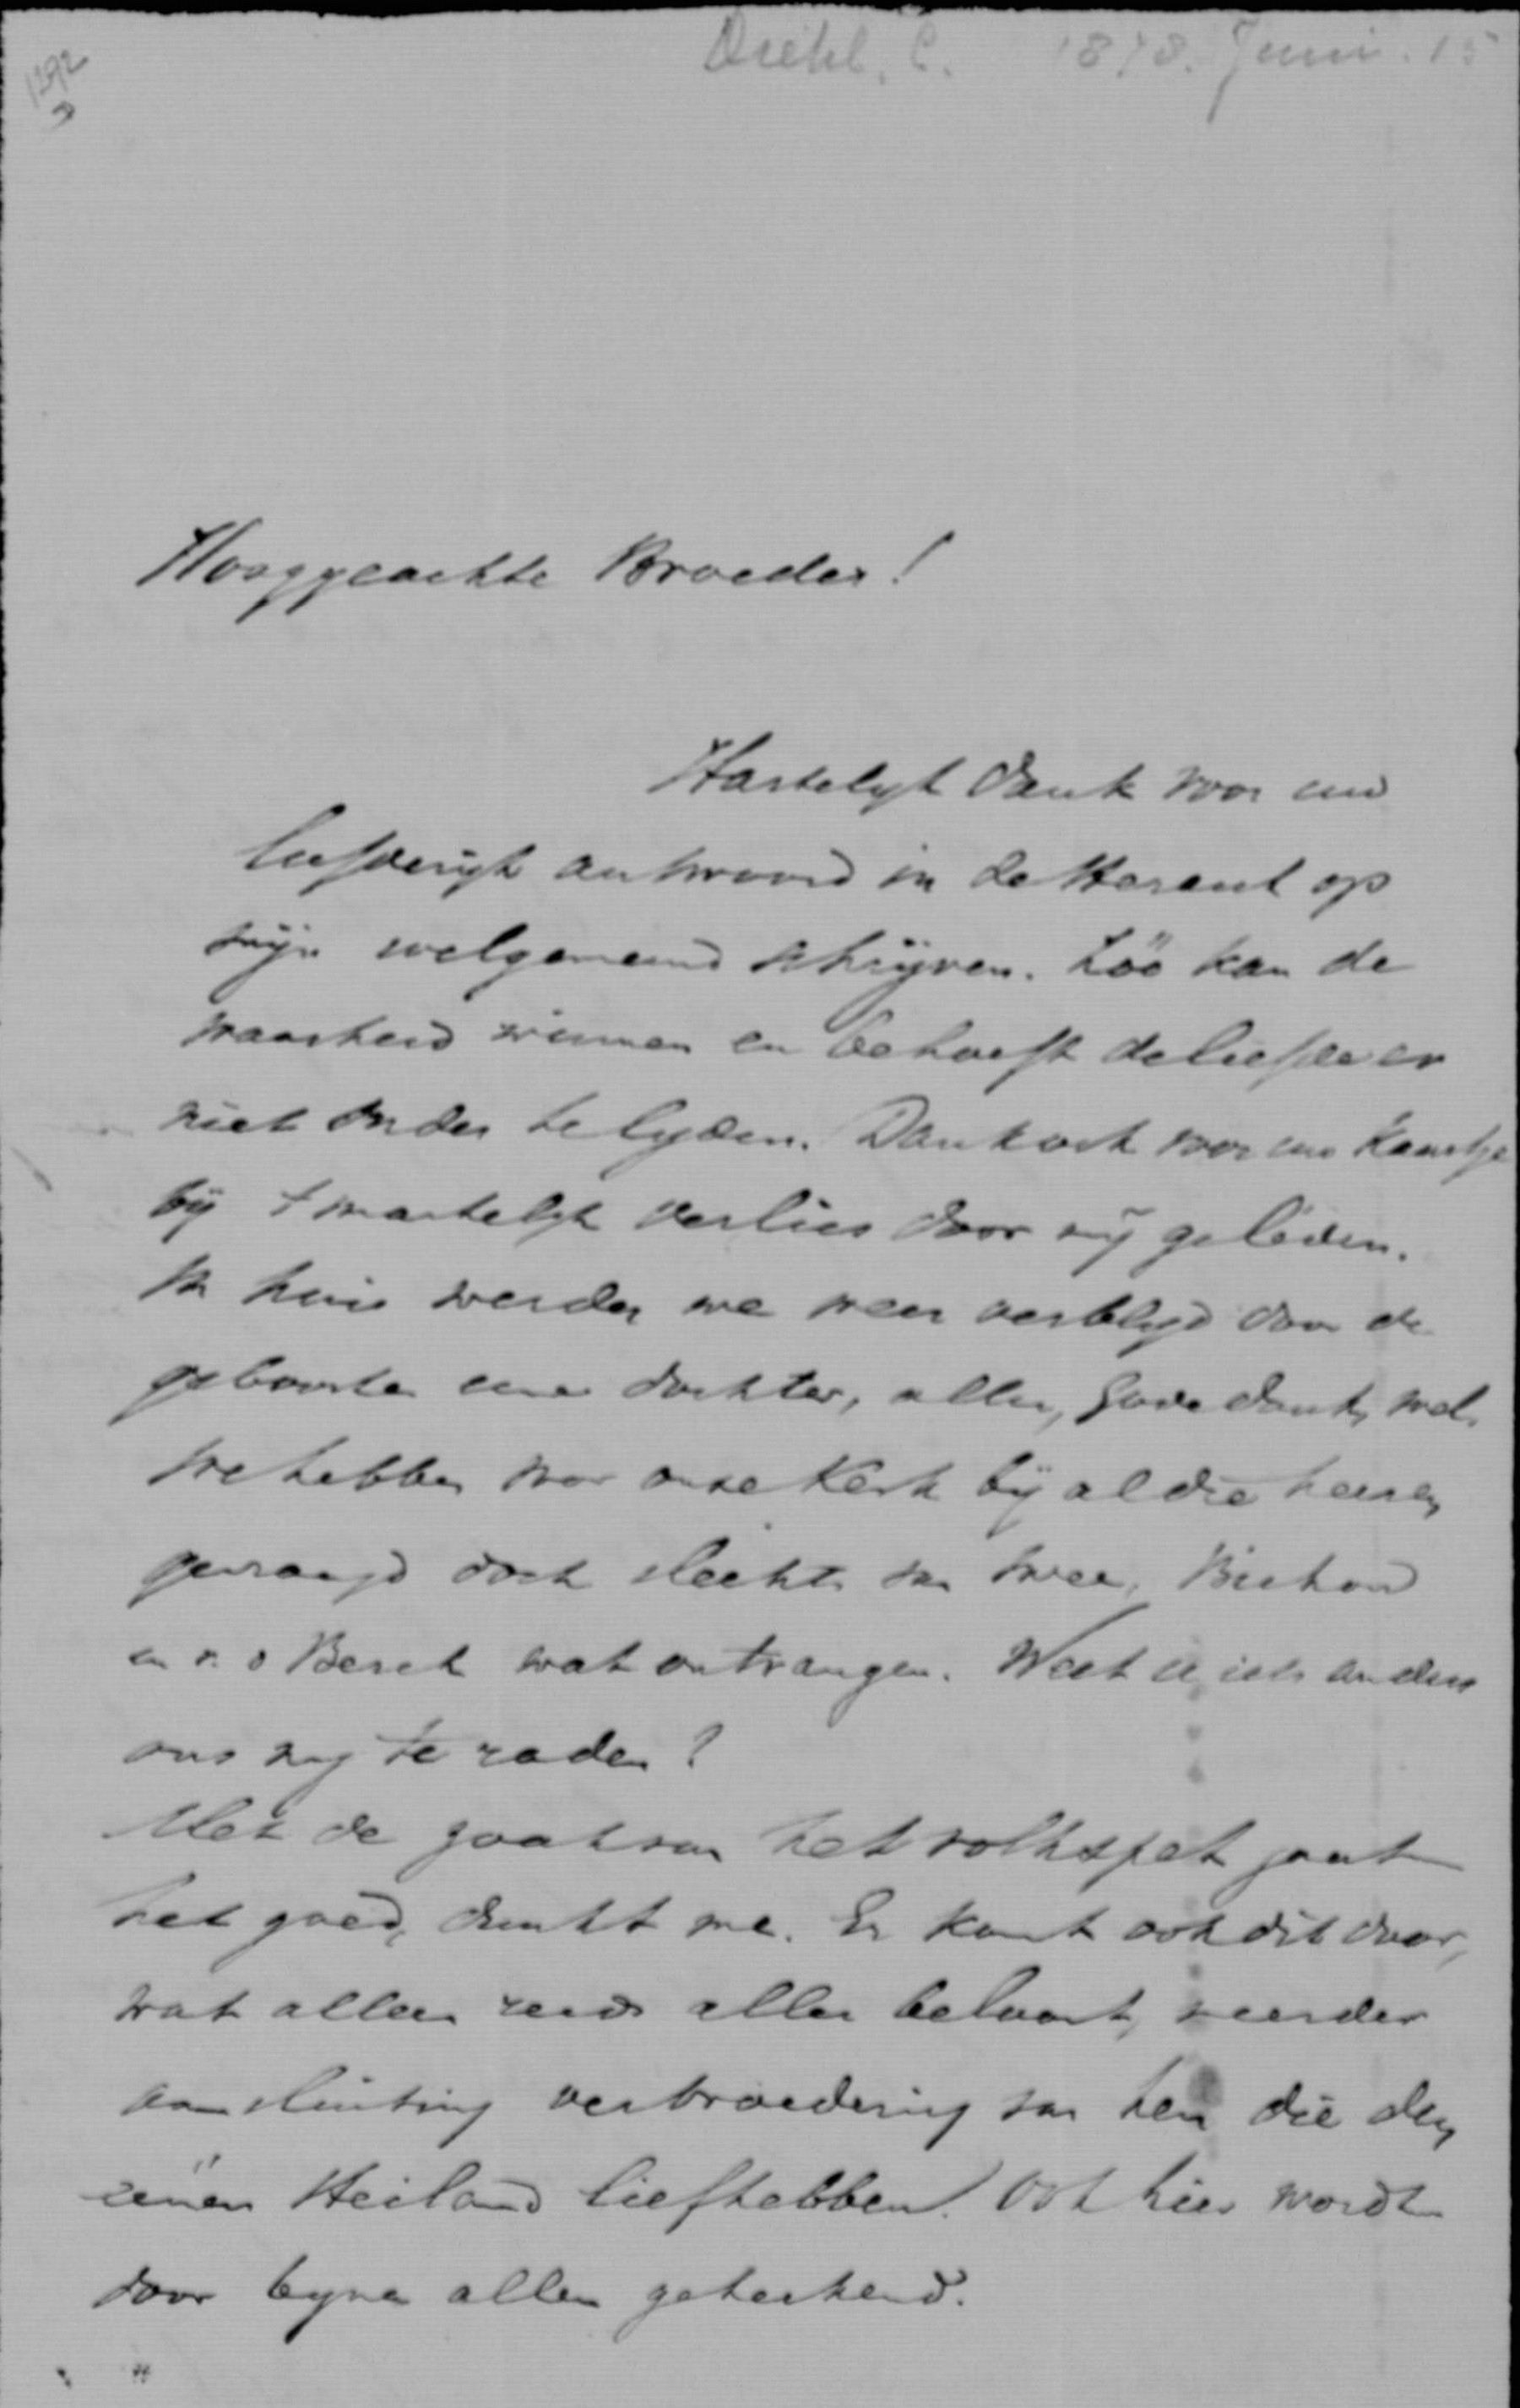 1292
Diehl, C. 1878. Juni. 15
Hooggeachte Broeder!
Hartelyk dank voor uw
liefderijk antwoord in de Heraut op
mijn welgemeend schrijven. Zóó kan de
waarheid winnen en behoeft de liefde er
niet onder te lyden. Dank ook voor uw kaartje
bij 't smartelyk verlies door mij geleden.
In huis werden we weer verblyd door de
geboorte eener dochter, alles, Gode dank, wel.
We hebben voor onze Kerk bij al die heeren
gevraagd doch slechts van twee, Bichon
en v. d Berch wat ontvangen. Weet u iets anders
ons nog te raden?
Met de zaak van het volkspet gaat
het goed, dunkt me. Er komt ook dit door,
wat alleen reeds alles beloont, meerder
aansluiting verbroedering van hen die den
eenen Heiland liefhebben. Ook hier wordt
door byna allen geteekend.